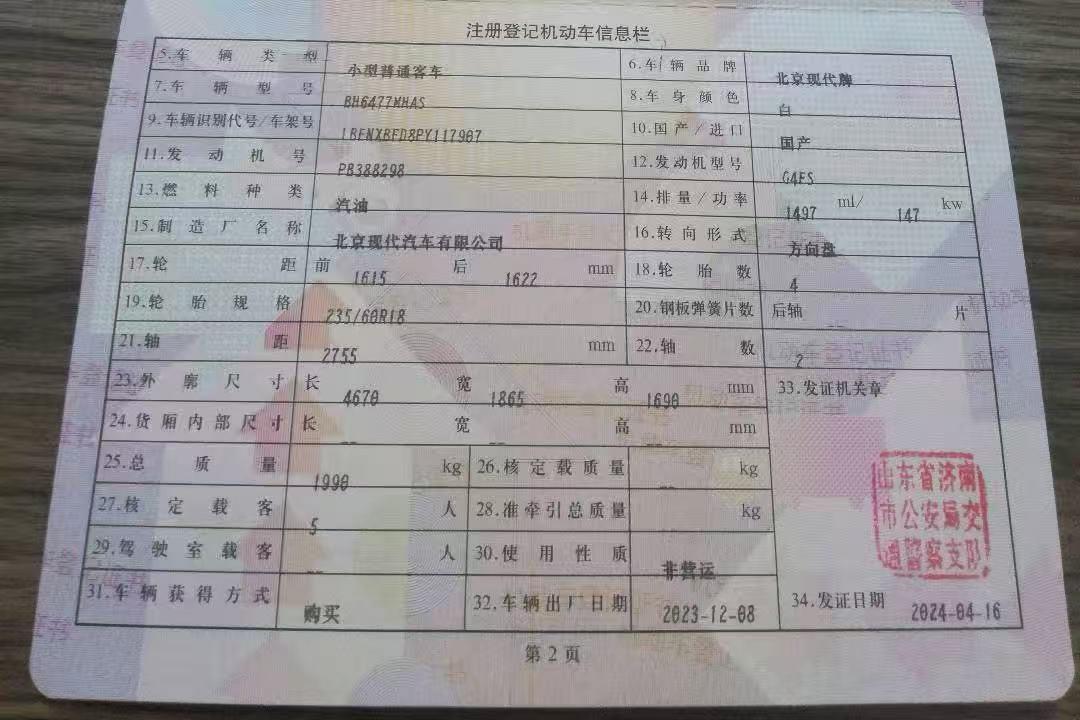 注册登记机动车信息栏
5.车辆类型 小型普通客车 6.车辆品牌 北京现代牌
7.车辆型号 BH6477MHAS 8.车身颜色 白
9.车辆识别代号/车架号 LBENXBFD8PY117907 10.国产/进口 国产
11.发动机号 PB388298 12.发动机型号 G4FS
13.燃料种类 汽油 14.排量/功率 1497 ml/ 147 kw
15.制造厂名称 北京现代汽车有限公司 16.转向形式 方向盘
17.轮距 前 1615 后 1622 mm 18.轮胎数 4
19.轮胎规格 235/60R18 20.钢板弹簧片数 后轴 -- 片
21.轴距 2755 mm 22.轴数 2
23.外廓尺寸 长 4670 宽 1865 高 1690 mm 33.发证机关章
24.货厢内部尺寸 长 -- 宽 -- 高 -- mm
25.总质量 1990 kg 26.核定载质量 -- kg
27.核定载客 5 人 28.准牵引总质量 -- kg
29.驾驶室载客 -- 人 30.使用性质 非营运
山东省济南
市公安局交
通警察支队
31.车辆获得方式 购买 32.车辆出厂日期 2023-12-08 34.发证日期 2024-04-16
第2页